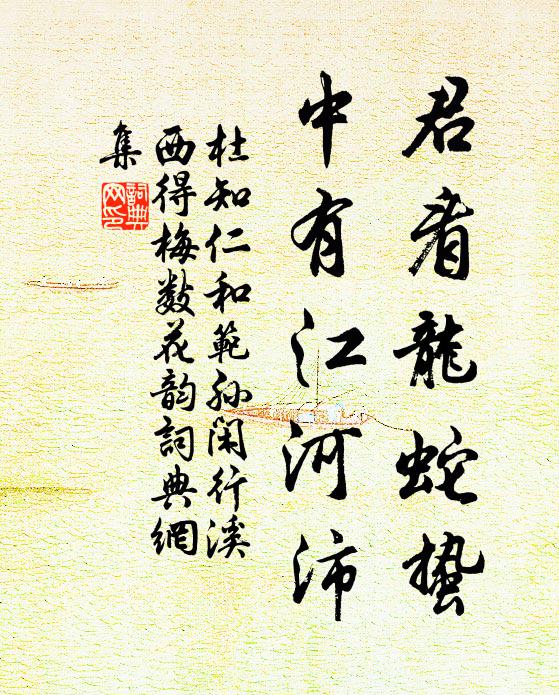 君看龍蛇蟄
中有江河沛
杜知仁和範孙闲行溪
西得梅数花韵詞典網
集
詞典
网印